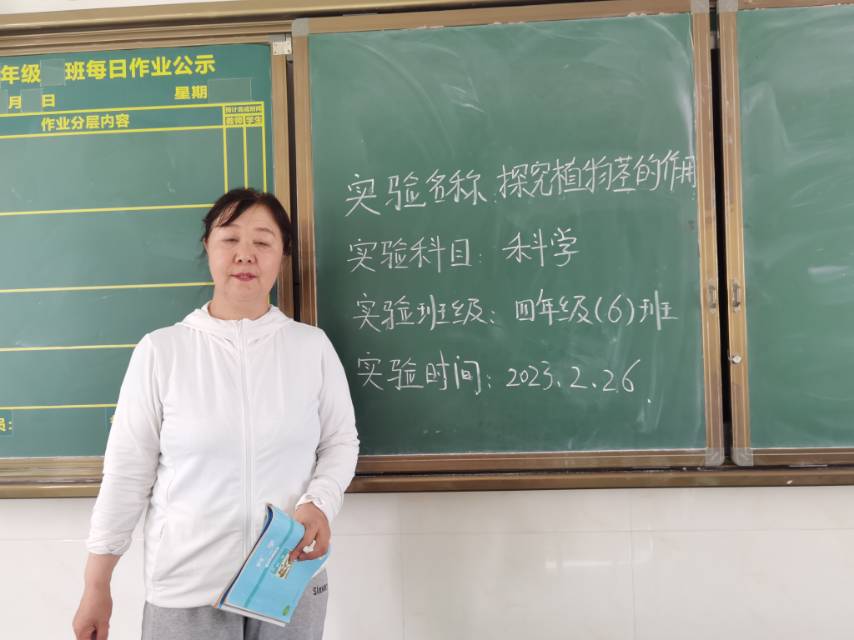 年级 班每日作业公示
月 日 星期
作业分层内容
预计完成时间
教师 学生
员:
实验名称:探究植物茎的作用
实验科目:科学
实验班级:四年级(6)班
实验时间:2023.2.26